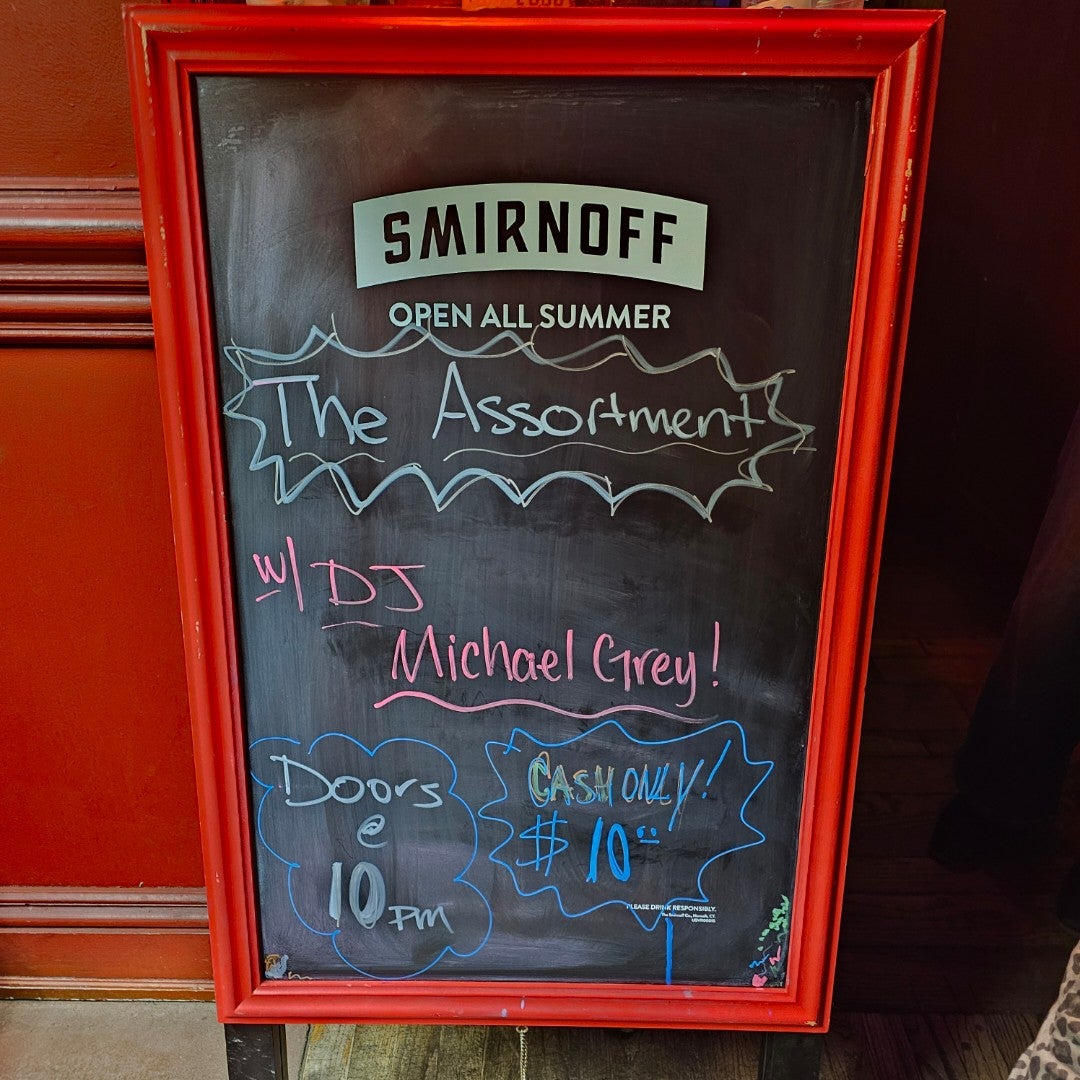 SMIRNOFF
OPEN ALL SUMMER
The Assortment
w/ DJ
Michael Grey!
Doors
@
10 PM
CASH ONLY!
$10.00
PLEASE DRINK RESPONSIBLY.